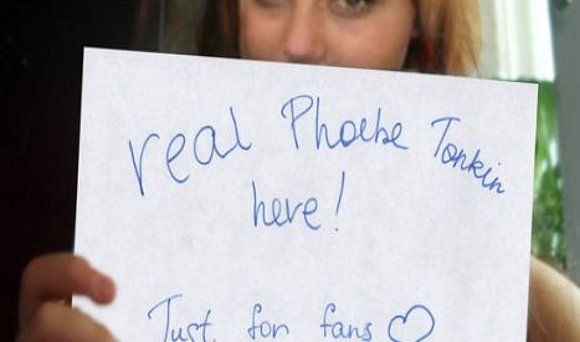 real Phoebe Tonkin
here!
Just for fans ♡